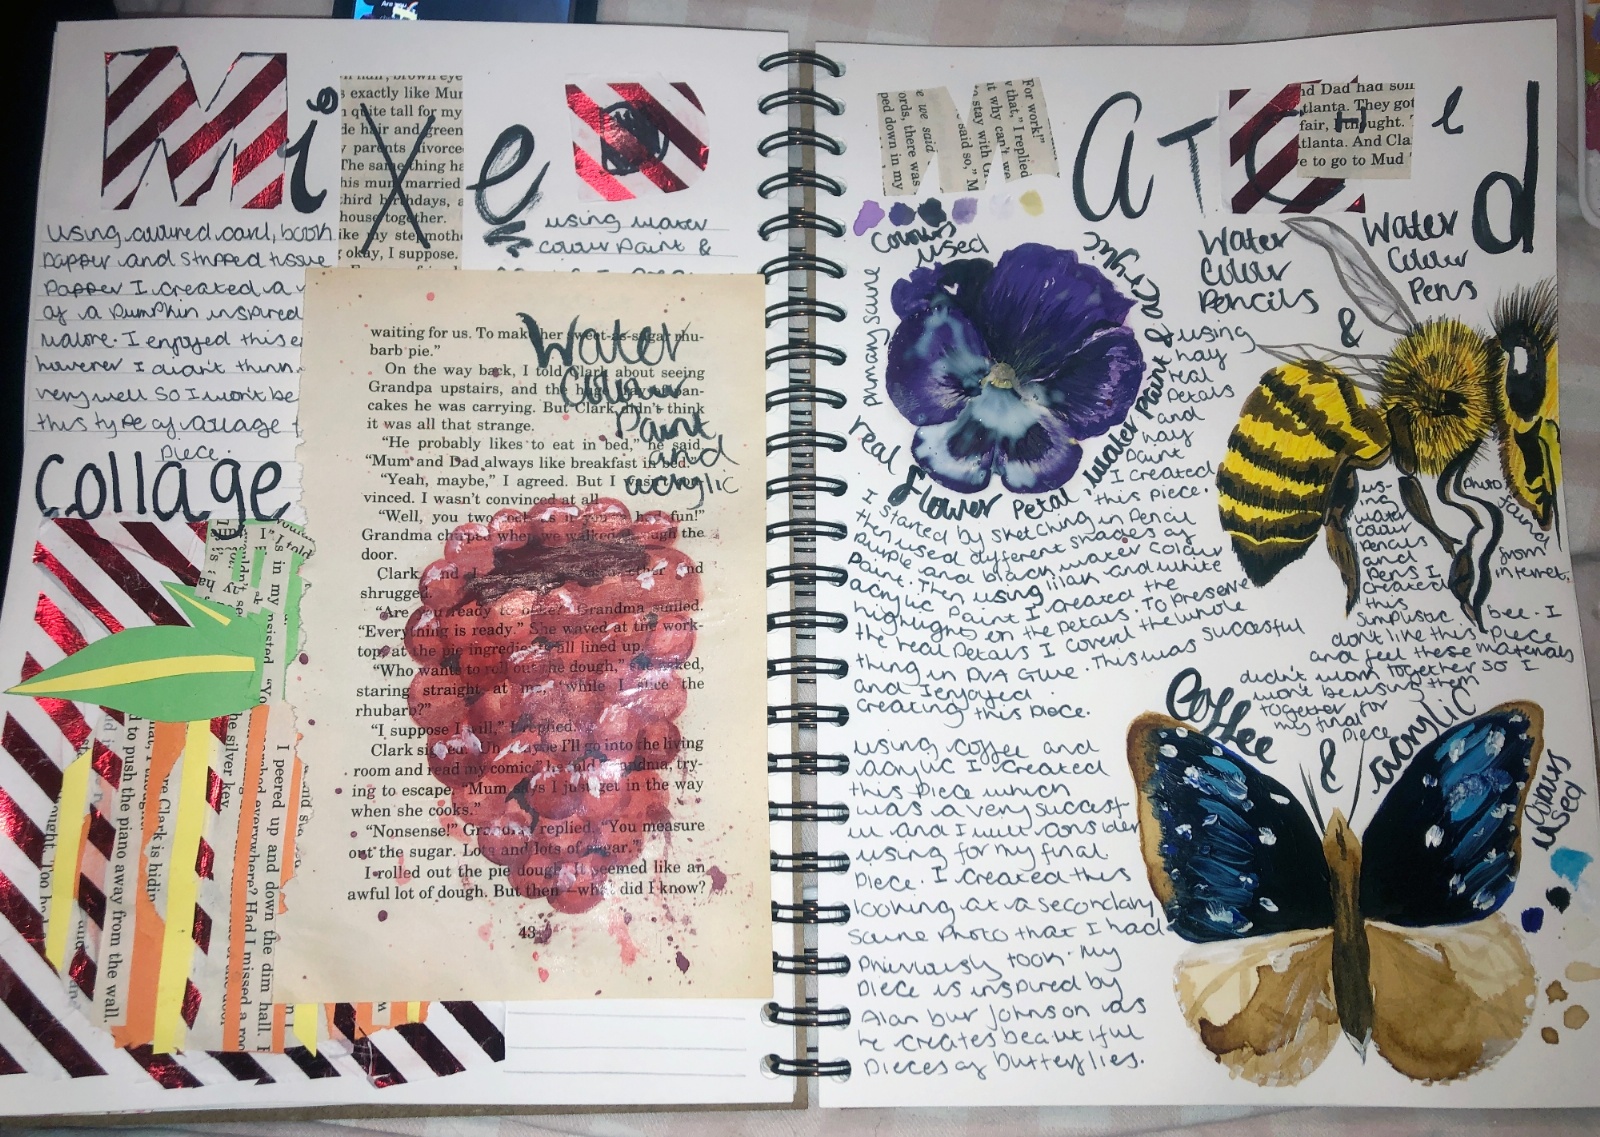 Mixed
Matched
exactly like Mum
quite tall for my
hair and green
parents divorced
The same thing ha
his mum married
third birthdays, a
house together.
ike my stepmothe
okay, I suppose.
using water
colour Paint &
using coloured card, book
papper and stripped tissue
papper I created a
of a pumpkin inspired
I enjoyed this
however I didn't think
very well so I won't be
this type of collage
piece.
collage
Water
Colour
Paint
and
acrylic
waiting for us. To make her sweet-as-sugar rhu-
barb pie."
On the way back, I told Clark about seeing
Grandpa upstairs, and the huge pan-
cakes he was carrying. But Clark didn't think
it was all that strange.
"He probably likes to eat in bed," he said.
"Mum and Dad always like breakfast in bed."
"Yeah, maybe," I agreed. But I wasn't con-
vinced. I wasn't convinced at all.
"Well, you two look as if you had fun!"
Grandma chirped when we walked through the
door.
Clark and I each other and
shrugged.
"Are you ready to bake?" Grandma smiled.
"Everything is ready." She waved at the work-
top, at the pie ingredients all lined up.
"Who wants to roll out the dough," she asked,
staring straight at me, "while I slice the
rhubarb?"
"I suppose I will," I replied.
Clark sighed. "Un maybe I'll go into the living
room and read my comic," he told Grandma, try-
ing to escape. "Mum says I just get in the way
when she cooks."
"Nonsense!" Grandma replied. "You measure
out the sugar. Lots and lots of sugar."
I rolled out the pie dough. It seemed like an
awful lot of dough. But then – what did I know?
43
to push the piano away from the wall.
Clark is hidin
the silver key
everywhere? Had I missed a roo
I peered up and down the dim hall.
we said
ords, there was
ped down in my
For work!"
that," I replied
it why can't we
stay with G
said so," M
nd Dad had
tlanta. They got
fair, I thought.
tlanta. And Cla
ve to go to Mud
Colours
used
primary source
real flower petal water paint & acrylic
using
real
petals
and
paint
I created
this piece.
I started by sketching in pencil
then used different shades of
purple and black water colour
paint. Then using lilah and white
acrylic paint I created the
highlights on the petals. To preserve
the real petals I coverd the whole
thing in PVA Glue. This was succesful
and I enjoyed
creating this piece.
Water
Colour
Pencils
&
Water
Colour
Pens
photo
found
from
internet.
us-
ing
water
colour
pencils
and
pens I
created
this
simplistic bee. I
don't like this piece
and feel these materials
didn't work together so I
won't be using them
together for
my final
piece
Coffee
&
acrylic
colours
used
using coffee and
acrylic I created
this piece which
was a very succesf
ul and I will consider
using for my final
piece. I created this
looking at a secondary
source photo that I had
previously took. My
piece is inspired by
Alan bur Johnson as
he creates beautiful
pieces of butterflies.